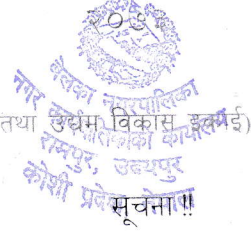 २०७३
बेलका नगरपालिका
नगर कार्यपालिकाको कार्यालय
तथा उद्यम विकास इकाई)
रामपुर, उदयपुर
कोशी प्रदेश, नेपाल
सूचना !!